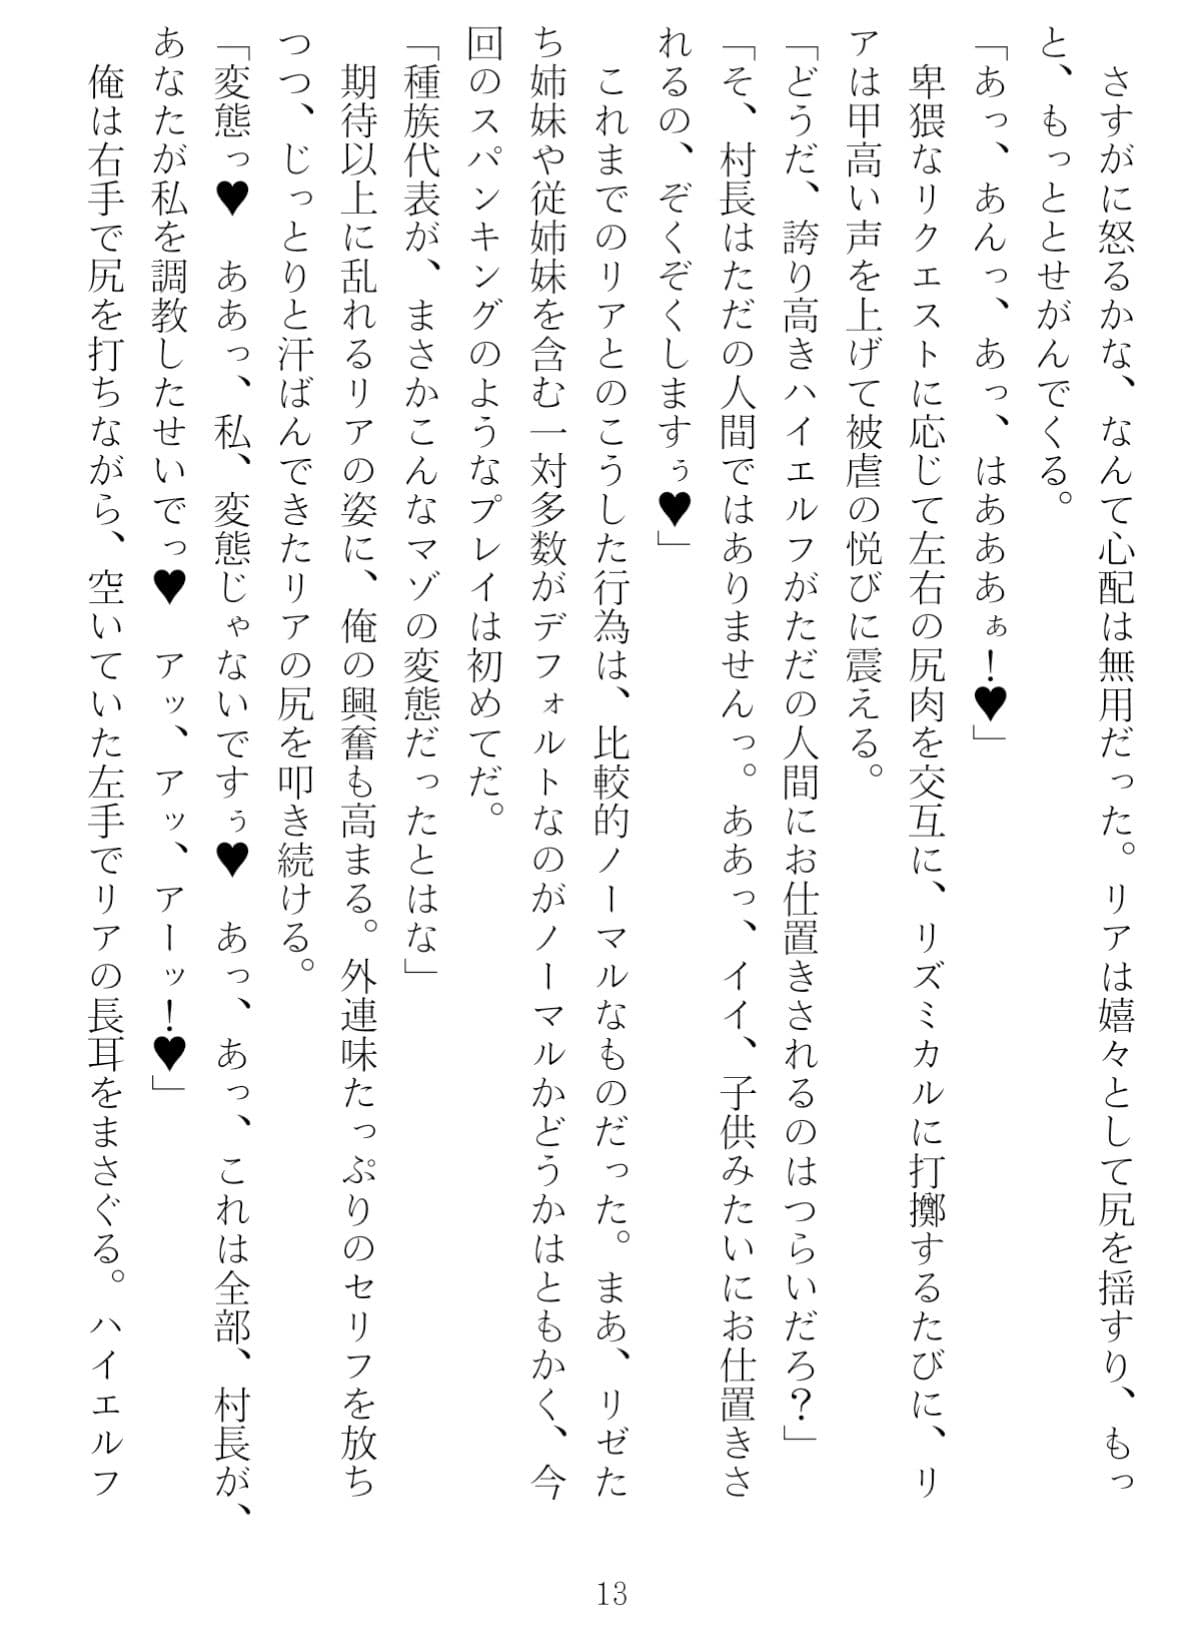 さすがに怒るかな、なんて心配は無用だった。リアは嬉々として尻を揺すり、もっ
と、もっととせがんでくる。
「あっ、あんっ、あっ、はあああぁ！♥」
卑猥なリクエストに応じて左右の尻肉を交互に、リズミカルに打擲するたびに、リ
アは甲高い声を上げて被虐の悦びに震える。
「どうだ、誇り高きハイエルフがただの人間にお仕置きされるのはつらいだろ？」
「そ、村長はただの人間ではありませんっ。ああっ、イイ、子供みたいにお仕置きさ
れるの、ぞくぞくしますぅ♥」
これまでのリアとのこうした行為は、比較的ノーマルなものだった。まあ、リゼた
ち姉妹や従姉妹を含む一対多数がデフォルトなのがノーマルかどうかはともかく、今
回のスパンキングのようなプレイは初めてだ。
「種族代表が、まさかこんなマゾの変態だったとはな」
期待以上に乱れるリアの姿に、俺の興奮も高まる。外連味たっぷりのセリフを放ち
つつ、じっとりと汗ばんできたリアの尻を叩き続ける。
「変態っ♥　ああっ、私、変態じゃないですぅ♥　あっ、あっ、これは全部、村長が、
あなたが私を調教したせいでっ♥　アッ、アッ、アーッ！♥」
俺は右手で尻を打ちながら、空いていた左手でリアの長耳をまさぐる。ハイエルフ
13